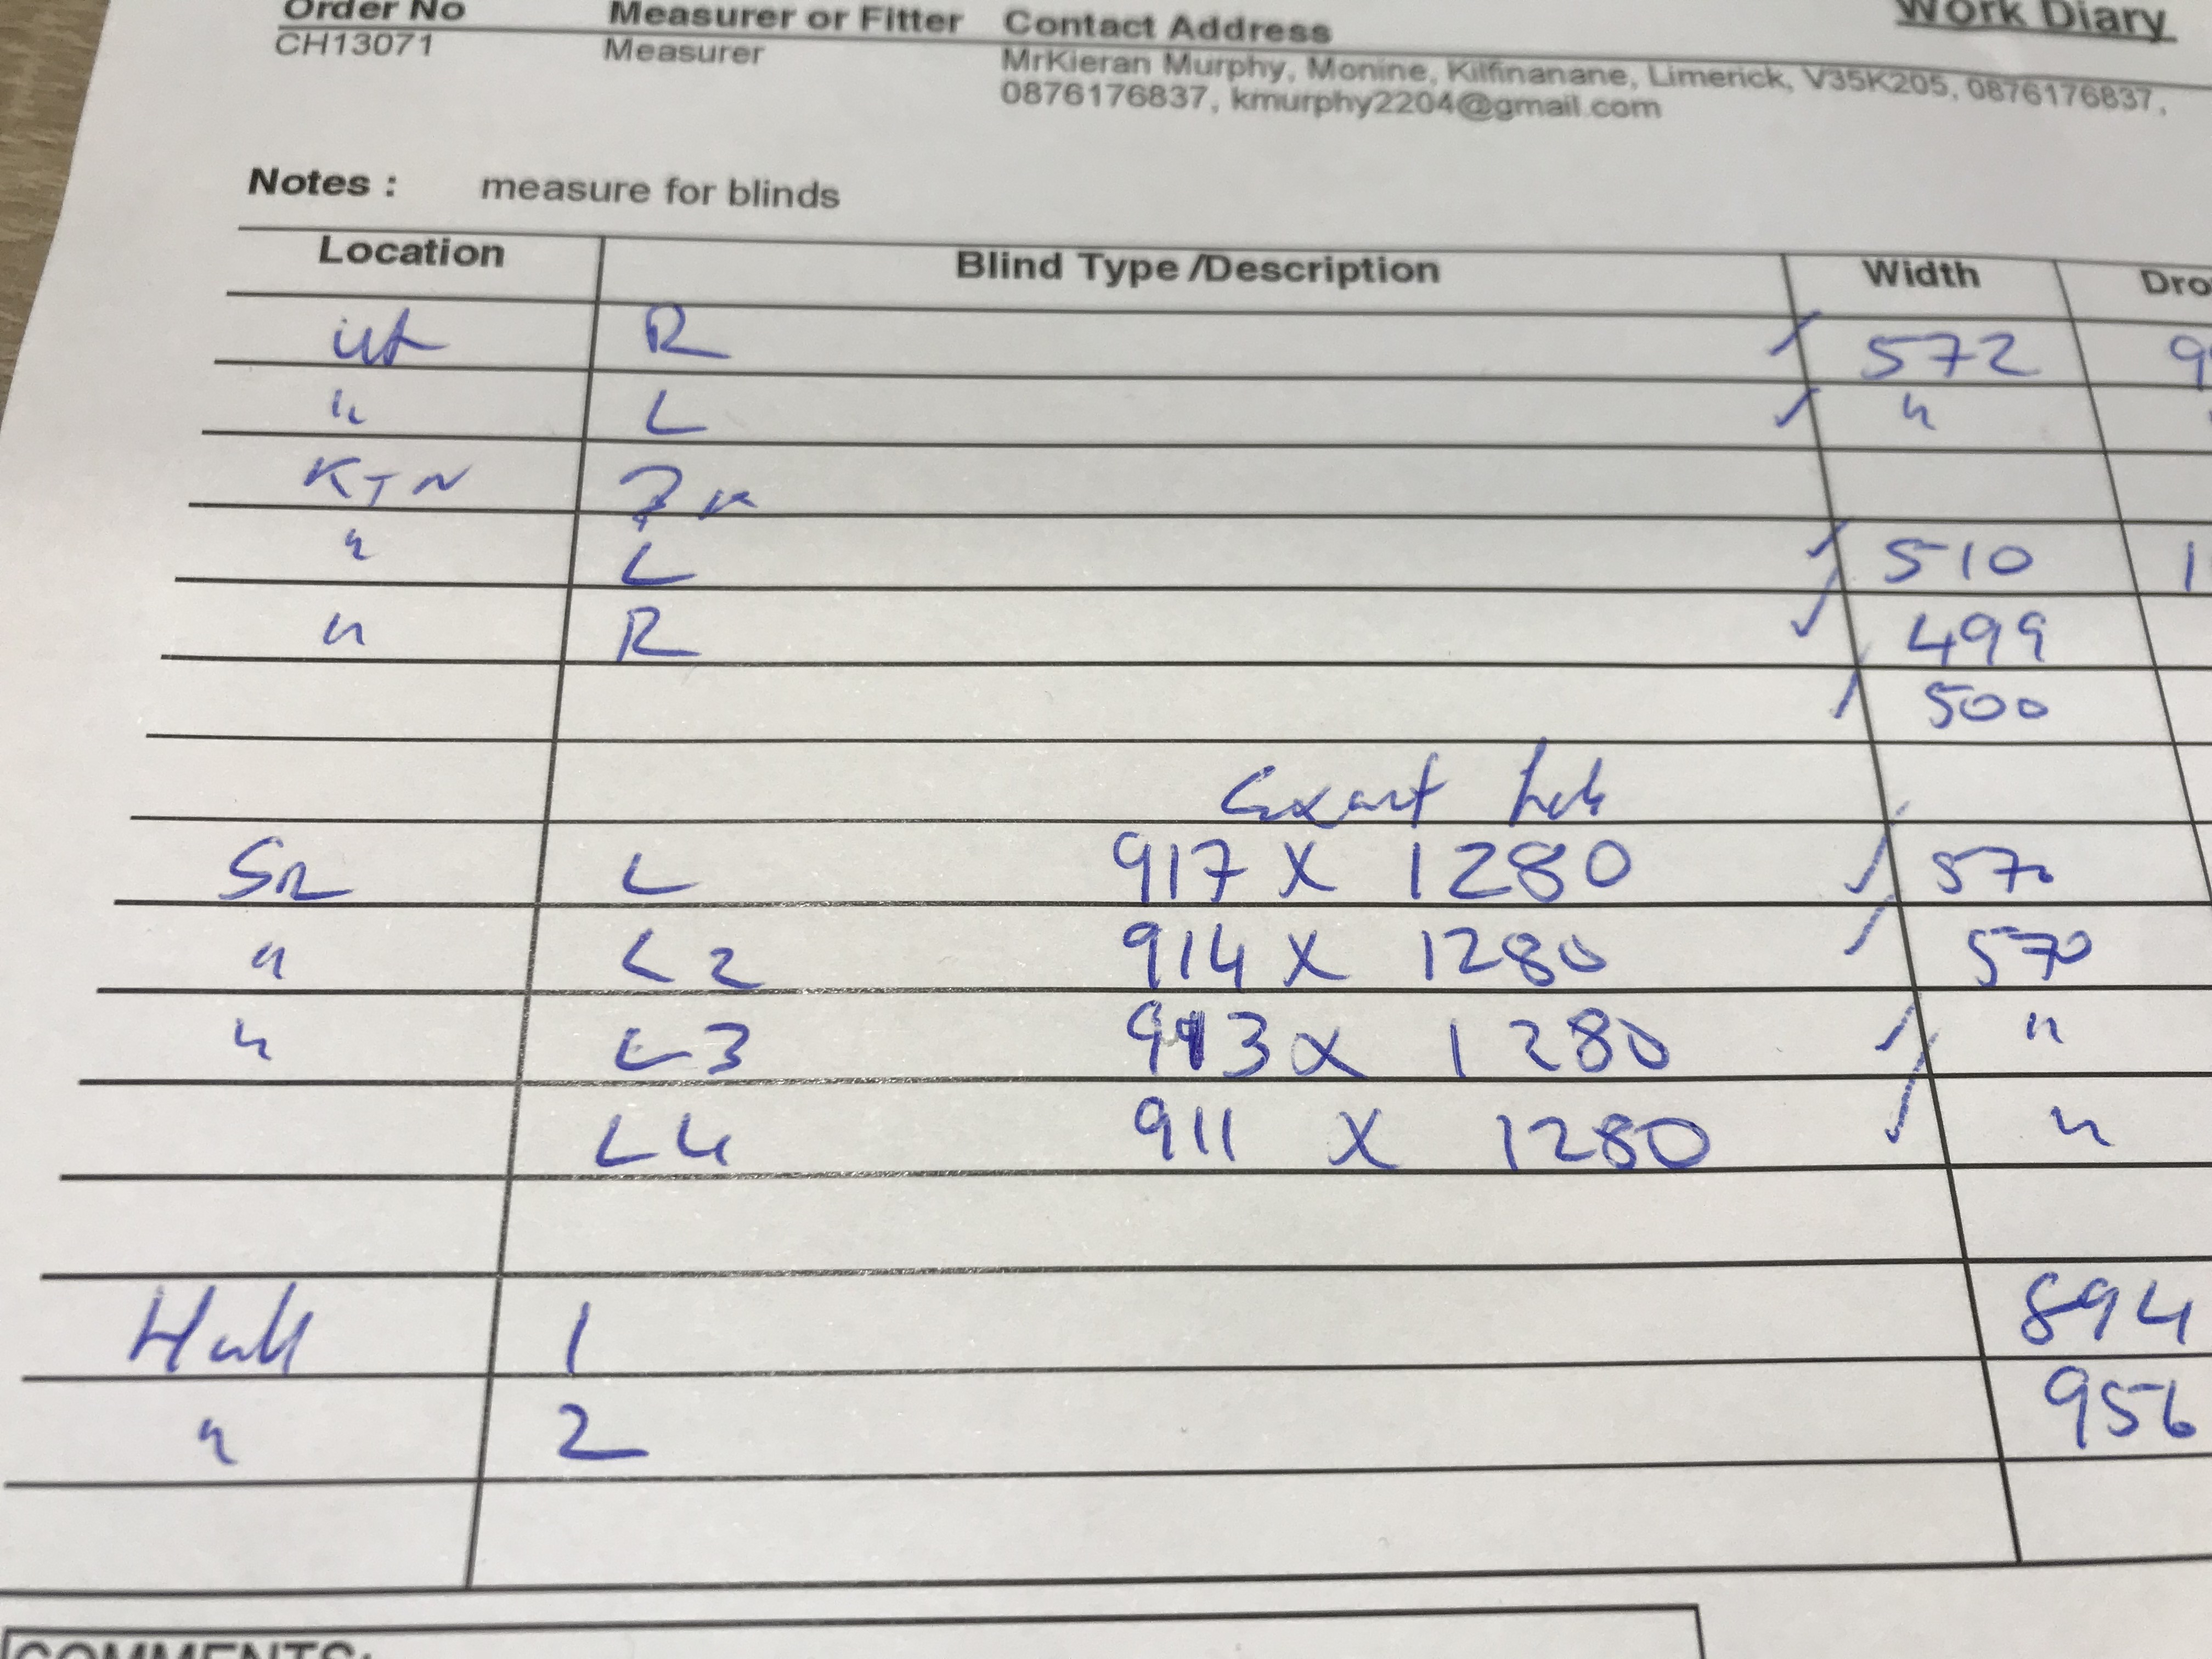 Work Diary
Order No Measurer or Fitter Contact Address
CH13071 Measurer MrKieran Murphy, Monine, Kilfinanane, Limerick, V35K205, 0876176837,
0876176837, kmurphy2204@gmail.com
Notes : measure for blinds
Location Blind Type /Description Width Dro
R 572 9
" L "
KTN ?
" L 510 1
" R 499
500
Exact
SR L 917 X 1280 570
" L2 914 X 1280 570
" L3 913 X 1280 "
L4 911 X 1280 "
Hall 1 894
" 2 956
COMMENTS: